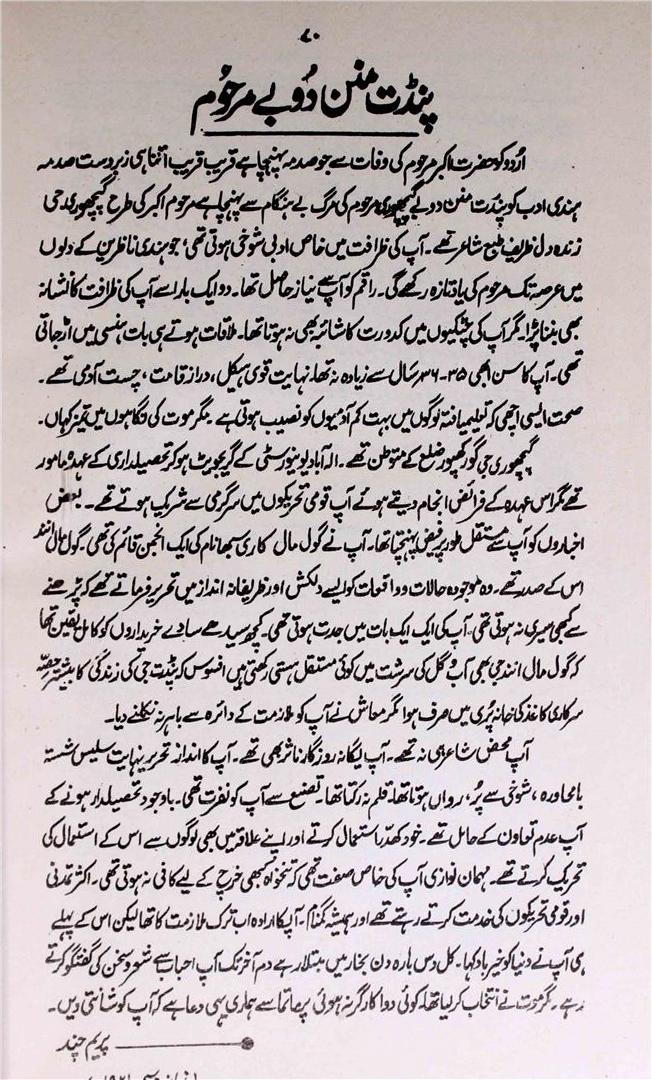 ۷۰
پنڈت منن دُوبے مرحُوم
اُردو کو حضرت اکبر مرحوم کی وفات سے جو صدمہ پہنچا ہے قریب قریب اتنا ہی زبردست صدمہ
ہندی ادب کو پنڈت منن دوبے گجپوری مرحوم کی مرگ بے ہنگام سے پہنچا ہے مرحوم اکبر کی طرح گجپوری جی
زندہ دل ظریف طبع شاعر تھے۔ آپ کی ظرافت میں خاص ادبی شوخی ہوتی تھی، جو ہندی ناظرین کے دلوں
میں عرصہ تک مرحوم کی یاد تازہ رکھے گی۔ راقم کو آپ سے نیاز حاصل تھا۔ دو ایک بار اسے آپ کی ظرافت کا نشانہ
بھی بننا پڑا۔ مگر آپ کی چٹکیوں میں کدورت کا شائبہ بھی نہ ہوتا تھا۔ ملاقات ہوتے ہی بات ہنسی میں اڑ جاتی
تھی۔ آپ کا سن ابھی ۳۵-۳۶ سال سے زیادہ نہ تھا۔ نہایت قوی ہیکل، دراز قامت، چست آدمی تھے۔
صحت ایسی اچھی کہ تعلیمیافتہ لوگوں میں بہت کم آدمیوں کو نصیب ہوتی ہے۔ مگر موت کی نگاہوں میں تمیز کہاں۔
گجپوری جی گورکھپور ضلع کے متوطن تھے۔ الہ آباد یونیورسٹی کے گریجویٹ ہو کر تحصیلداری کے عہدہ مامور
تھے مگر اس عہدہ کے فرائض انجام دیتے ہوئے آپ قومی تحریکوں میں سرگرمی سے شریک ہوتے تھے۔ بعض
اخباروں کو آپ سے مستقل طور پر فیض پہنچتا تھا۔ آپ نے گول مال کاری سبھا نام کی ایک انجمن قائم کی تھی۔ گول مال انند
اس کے صدر تھے۔ وہ موجودہ حالات و واقعات کو ایسے دلکش اور ظریفانہ انداز میں تحریر فرماتے تھے کہ پڑھنے
سے کبھی سیری نہ ہوتی تھی۔ آپ کی ایک ایک بات میں جدت ہوتی تھی۔ کچھ سیدھے سادے خریداروں کو کامل یقین تھا
کہ گول مال انند جی بھی آب و گل کی سرشت میں کوئی مستقل ہستی رکھتی ہیں افسوس کہ پنڈت جی کی زندگی کا بیشتر حصّہ
سرکاری کاغذ کی خانہ پُری میں صرف ہوا مگر معاش نے آپ کو ملازمت کے دائرہ سے باہر نہ نکلنے دیا۔
آپ محض شاعر ہی نہ تھے۔ آپ یگانہ روزگار ناثر بھی تھے۔ آپ کا انداز تحریر نہایت سلیس شستہ
بامحاورہ، شوخی سے پُر، رواں ہوتا تھا۔ قلم نہ رکتا تھا۔ تصنع سے آپ کو نفرت تھی۔ باوجود تحصیلدار ہونے کے
آپ عدم تعاون کے حامل تھے۔ خود کھدّر استعمال کرتے اور اپنے علاقہ میں بھی لوگوں سے اس کے استعمال کی
تحریک کرتے تھے۔ مہمان نوازی آپ کی خاص صفت تھی کہ تنخواہ کبھی خرچ کے لیے کافی نہ ہوتی تھی۔ اکثر تمدنی
اور قومی تحریکوں کی خدمت کرتے رہتے تھے اور ہمیشہ گمنام۔ آپکا ارادہ اب ترک ملازمت کا تھا لیکن اس کے پہلے
ہی آپ نے دنیا کو خیرباد کہا۔ کل دس بارہ دن بخار میں مبتلا رہے دم آخر تک آپ احباب سے شعر و سخن کی گفتگو کرتے
رہے۔ مگر موت نے انتخاب کر لیا تھا۔ کوئی دوا کارگر نہ ہوئی پرماتما سے ہماری یہی دعا ہے کہ آپ کو شانتی دیں۔
پریم چند